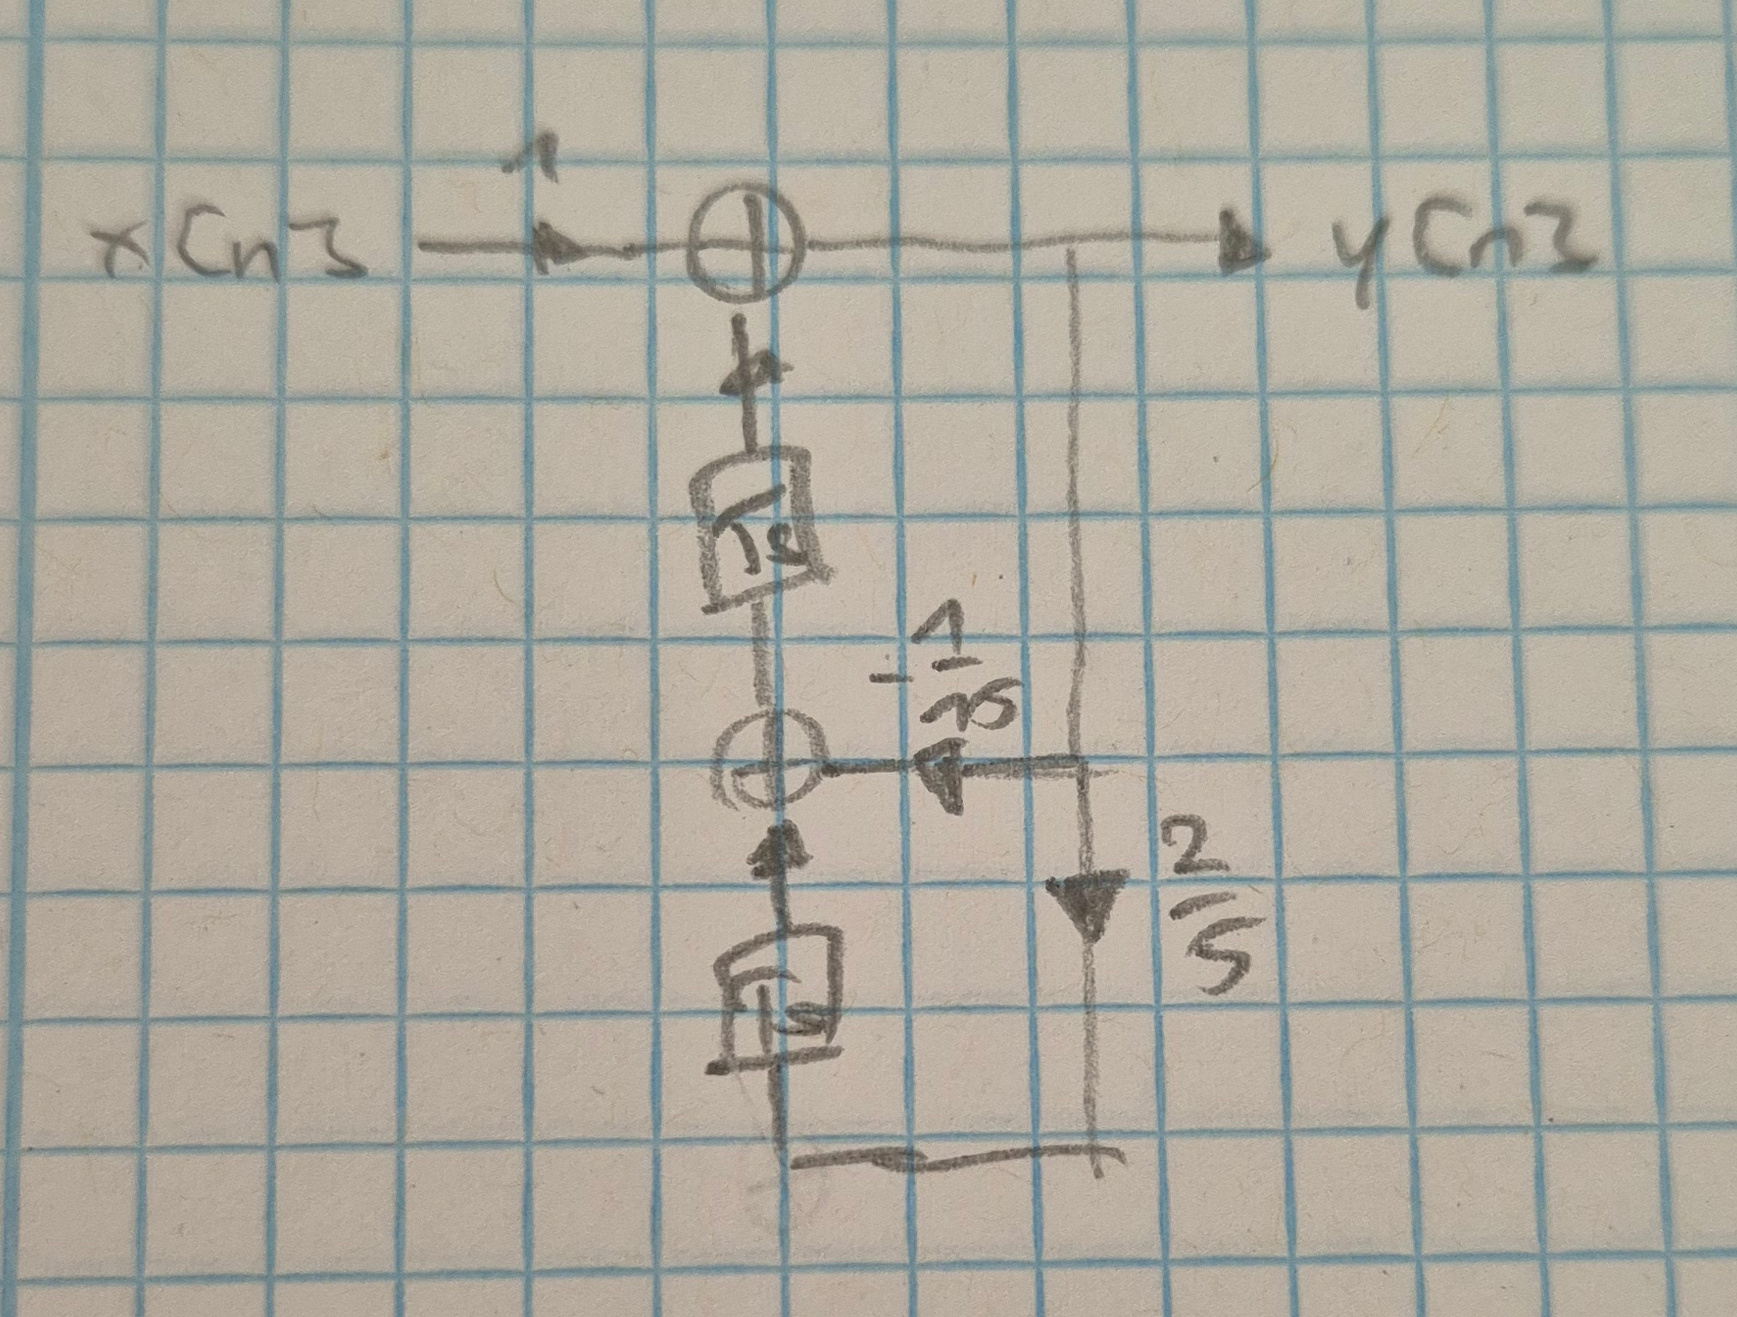 1
x[n] y[n]
Ts
- 1/15
2/5
Ts